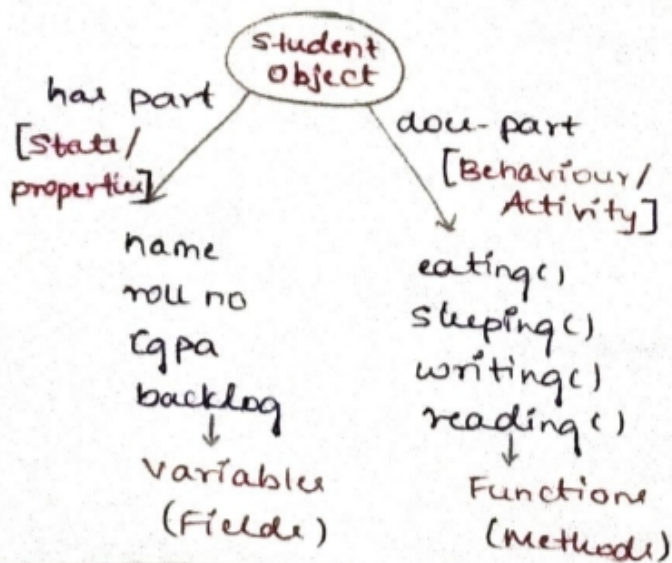 Student
Object
has part
[State/
properties]
name
roll no
cgpa
backlog
variables
(Fields)
does-part
[Behaviour/
Activity]
eating()
sleeping()
writing()
reading()
Functions
(Methods)